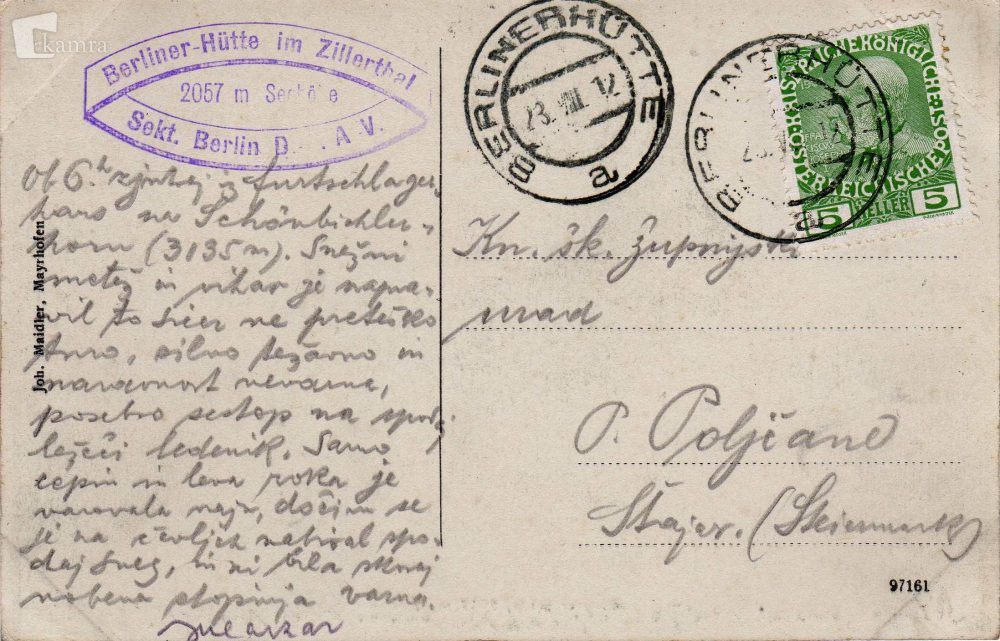 kamra
Berliner-Hütte im Zillerthal
2057 m Seehöhe
Sekt. Berlin D. A V.
BERLINERHÜTTE
23. VIII. 12
a
BERLINERHÜTTE
a
5 HELLER 5
Ob 6.h zjutraj iz Furtschlager-
haus na Schönbichler-
horn (3135 m). Snežni
metež in vihar je napra-
vil to sicer ne pretežko
turo, silno težavno in
naravnost nevarno,
posebno sestop na spod.
ležeči ledenik. Samo
cepin in leva roka je
varovala naju, dočim se
je na čevljih nabiral spo-
daj sneg, in ni bila skoraj
nobena stopinja varna.
Kn. šk. župnijski
urad
P. Poljčane
Štajer. (Steiermark)
Joh. Maidler, Mayrhofen
97161